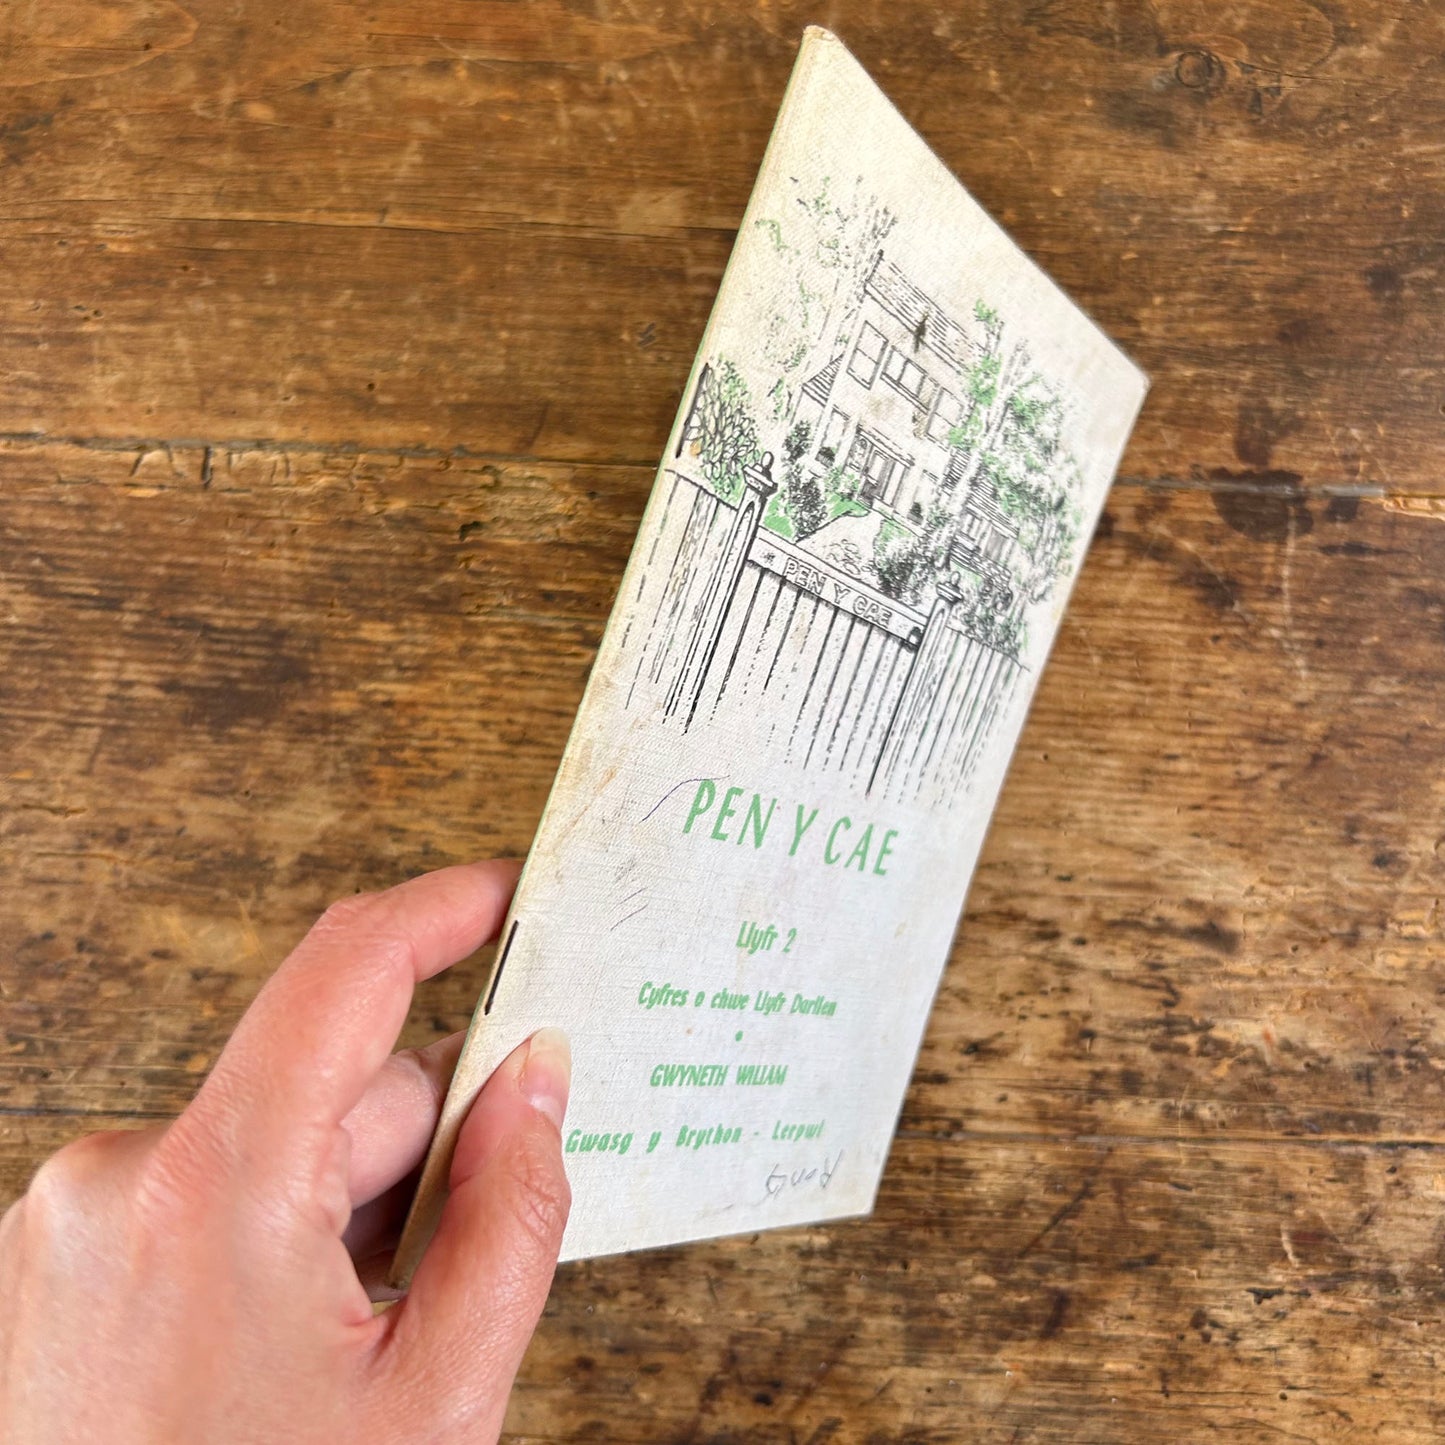 PEN Y CAE
PEN Y CAE
Llyfr 2
Cyfres o chwe Llyfr Darllen
GWYNETH WILIAM
Gwasg y Brython - Lerpwl